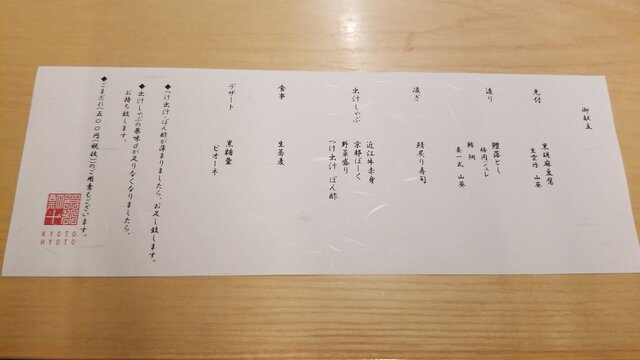 御献立
先付
黒胡麻豆腐
生雲丹 山葵
造り
鱧落とし
梅肉ジュレ
鮪 炯
山葵
凌ぎ
鯖炙り寿司
出汁しゃぶ
近江牛赤身
京都ぽーく
野菜盛り
つけ出汁 ぽん酢
食事
生蕎麦
デザート
黒糖羹
ピオーネ
◆つけ出汁・ぽん酢が薄まりましたら、お足し致します。
◆出汁しゃぶの薬味が足りなくなりましたら、
お持ち致します。
◆ごまだれ(五００円(税抜))のご用意もございます。
KYOTO
HYOTO